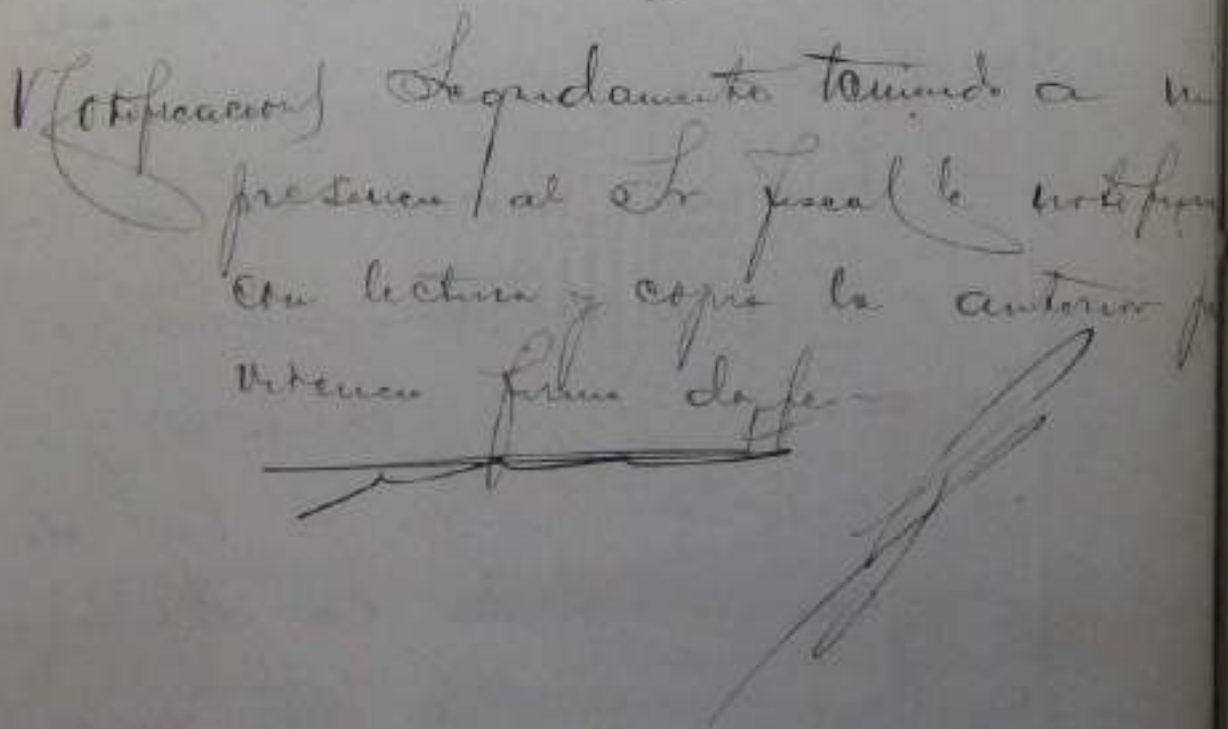 Notificacion) Seguidamente teniendo a m
presencia al Sr Fiscal le notifique
con lectura y copia la anterior p
videncia firma doy fe